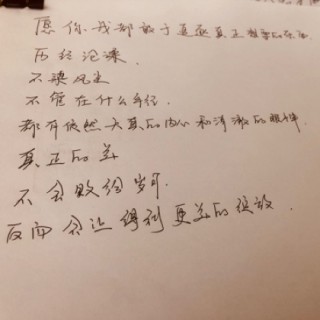 愿你我都敢于追逐真正热爱的东西
历经沧桑.
不染风尘
不管在什么年纪.
都有依然天真的内心和清澈的眼神.
真正的美
不会败给岁月.
反而会让得到更美的绽放.